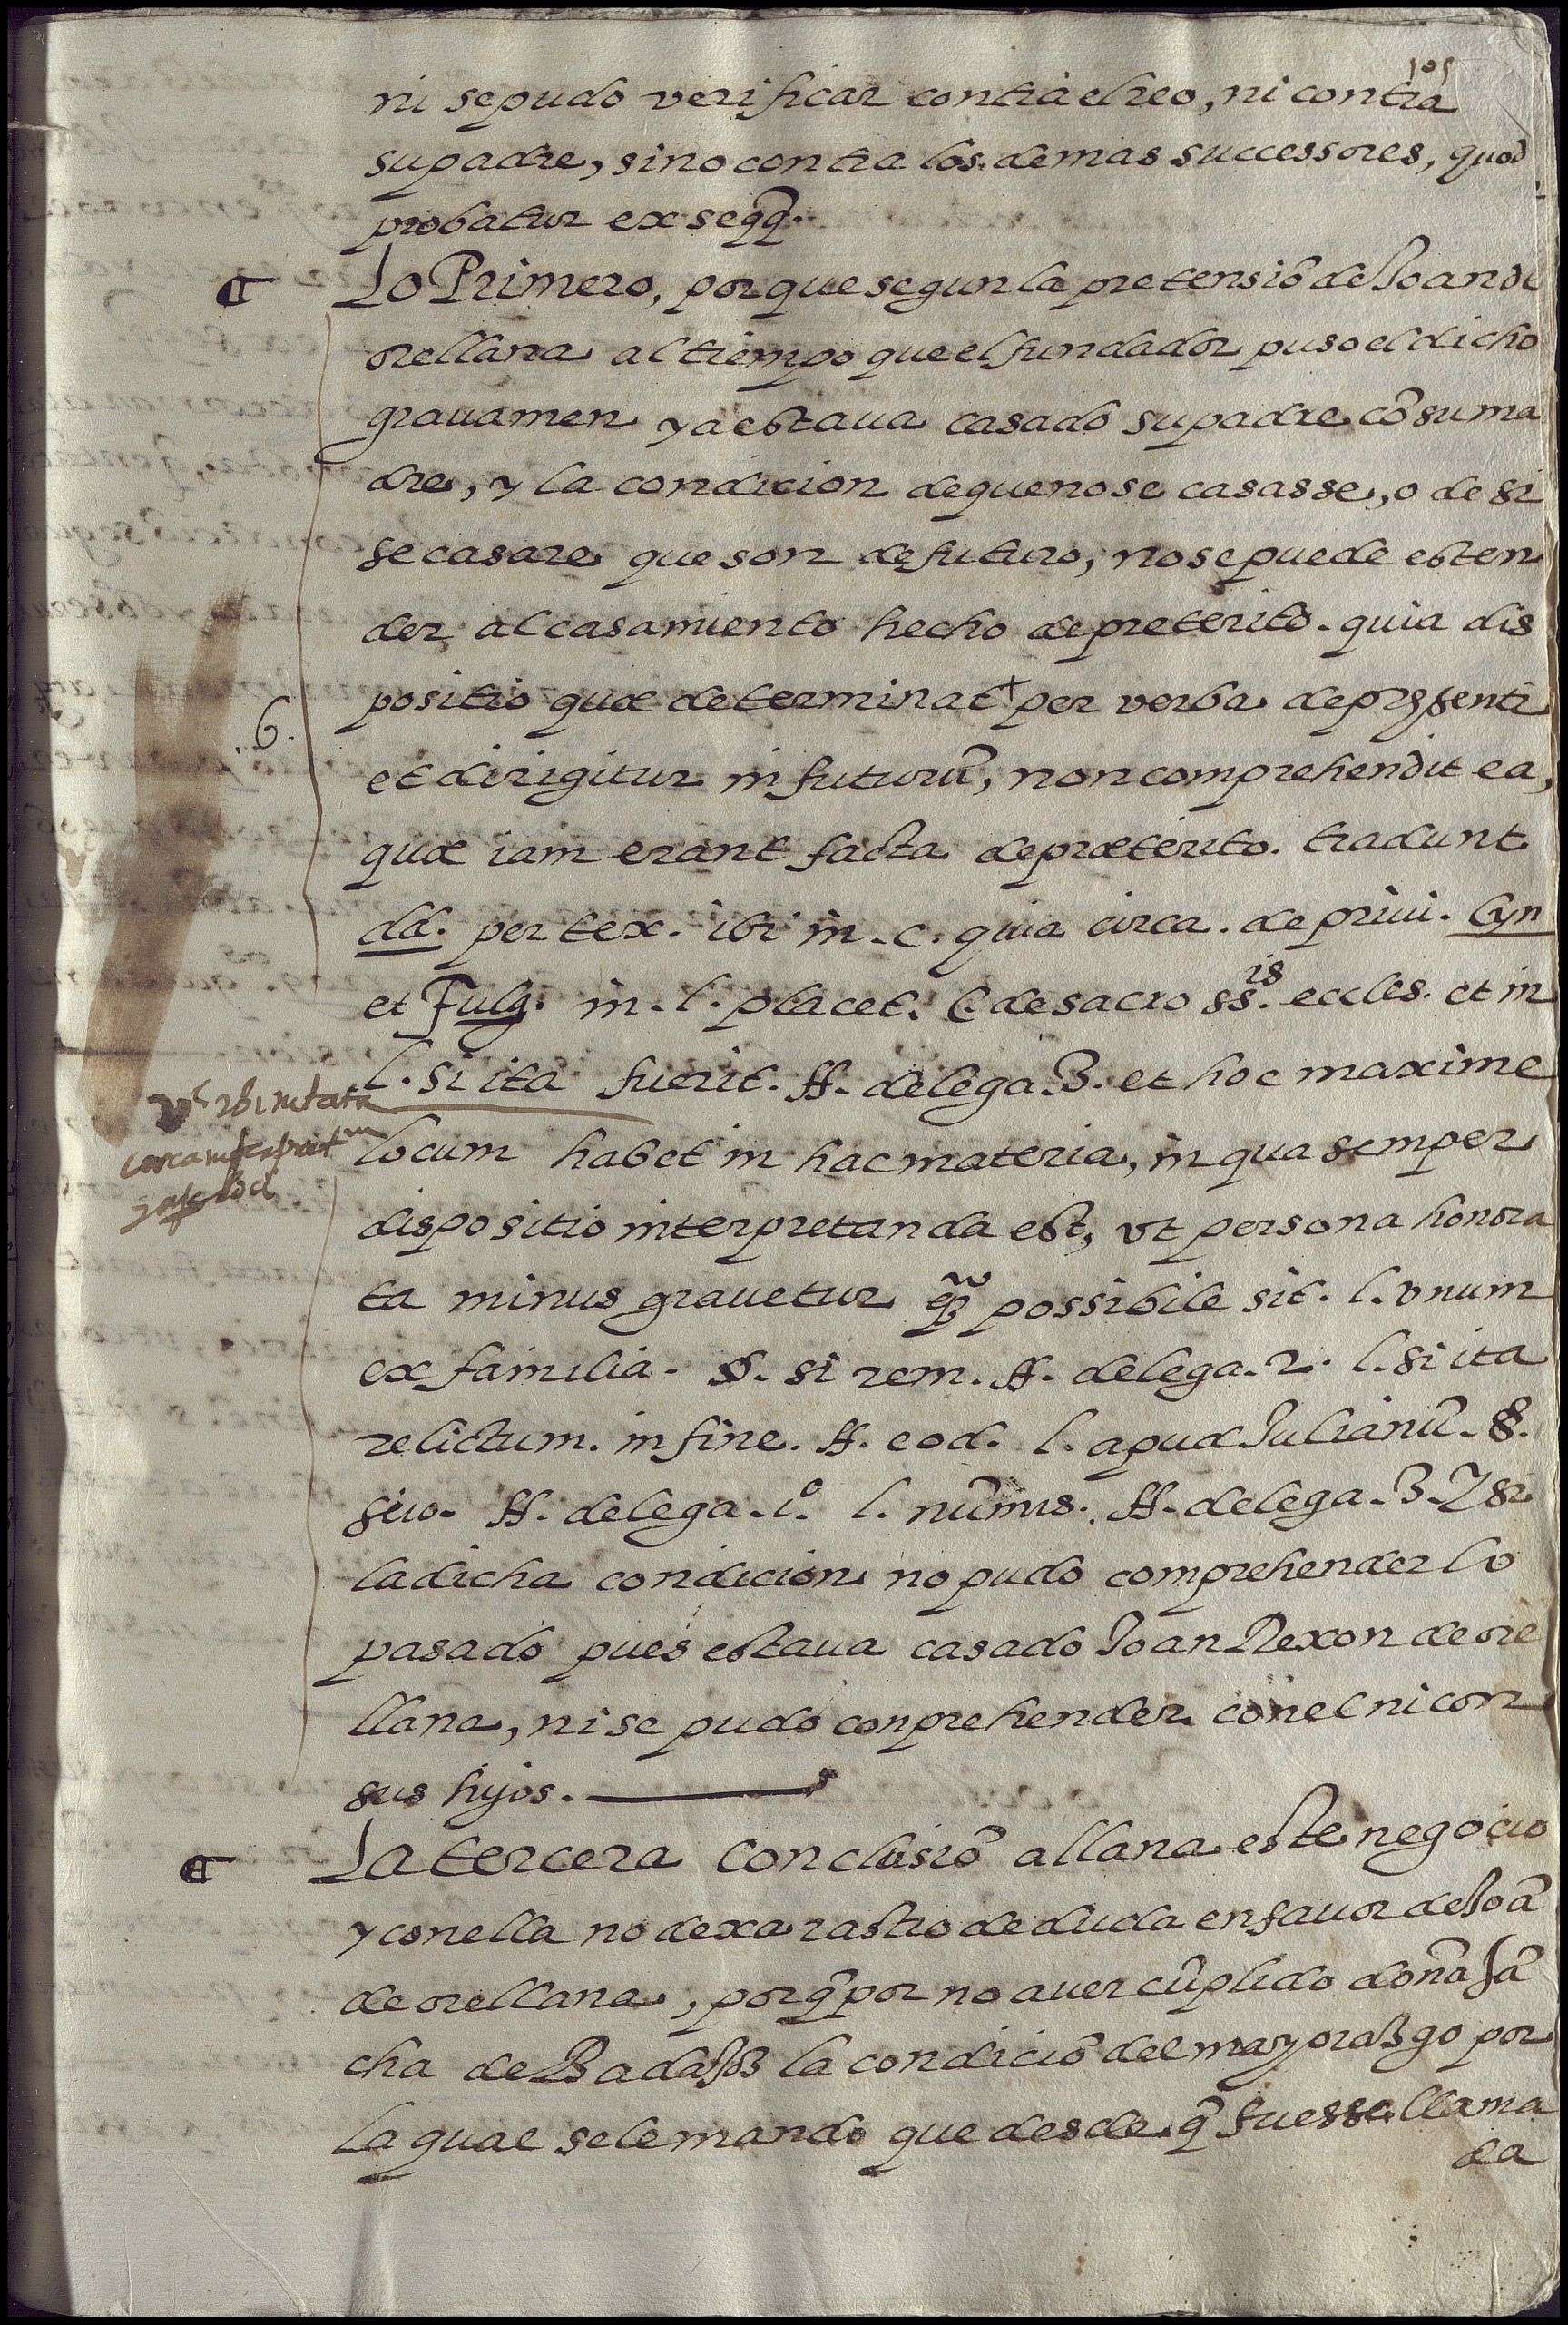 101
ni se pudo verificar contra el reo, ni contra
su padre, sino contra los demas successores, quod
probatur ex seqq̃.
¶ Lo Primero, porque segun la pretensiõ de Joan de
orellana al tiempo que el fundador puso el dicho
grauamen ya estaua casado su padre cõ su ma
dre, y la condicion de que no se casasse, o de si
se casare que son de futuro, no se puede esten
der al casamiento hecho de preterito. quia dis
6. positio quæ determinat + per verba de pręsenti
et dirigitur in futurũ, non comprehendit ea,
quæ iam erant facta de præterito. tradunt
dd. per tex. ibi in. c. quia circa. de priui. Cyn
et Fulg. in. l. placet. C. de sacro ss.is eccles. et in
l. si ita fuerit. ff. de lega. 3. et hoc maxime
locum habet in hac materia, in qua semper
dispositio interpretanda est, vt persona honora
ta minus grauetur possibile sit. l. vnum
ex familia. §. si rem. ff. de lega. 2. l. si ita
relictum. in fine. ff. eod. l. apud Julianũ. §.
ff. de lega. 1º l. nũmis. ff. de lega. 3. Y si
la dicha condicion no pudo comprehender lo
pasado pues estaua casado Joan Rexon de ore
llana, ni se pudo conprehender con el ni con
sus hijos.
¶ La tercera conclusiõ allana este negocio
y con ella no dexa rastro de duda en fauor de Joã
de orellana, porq̃ por no auer cũplido doña sã
cha de Badajoz la condiciõ del mayorazgo por
la qual se le mando que desde q̃ fuesse llama
da